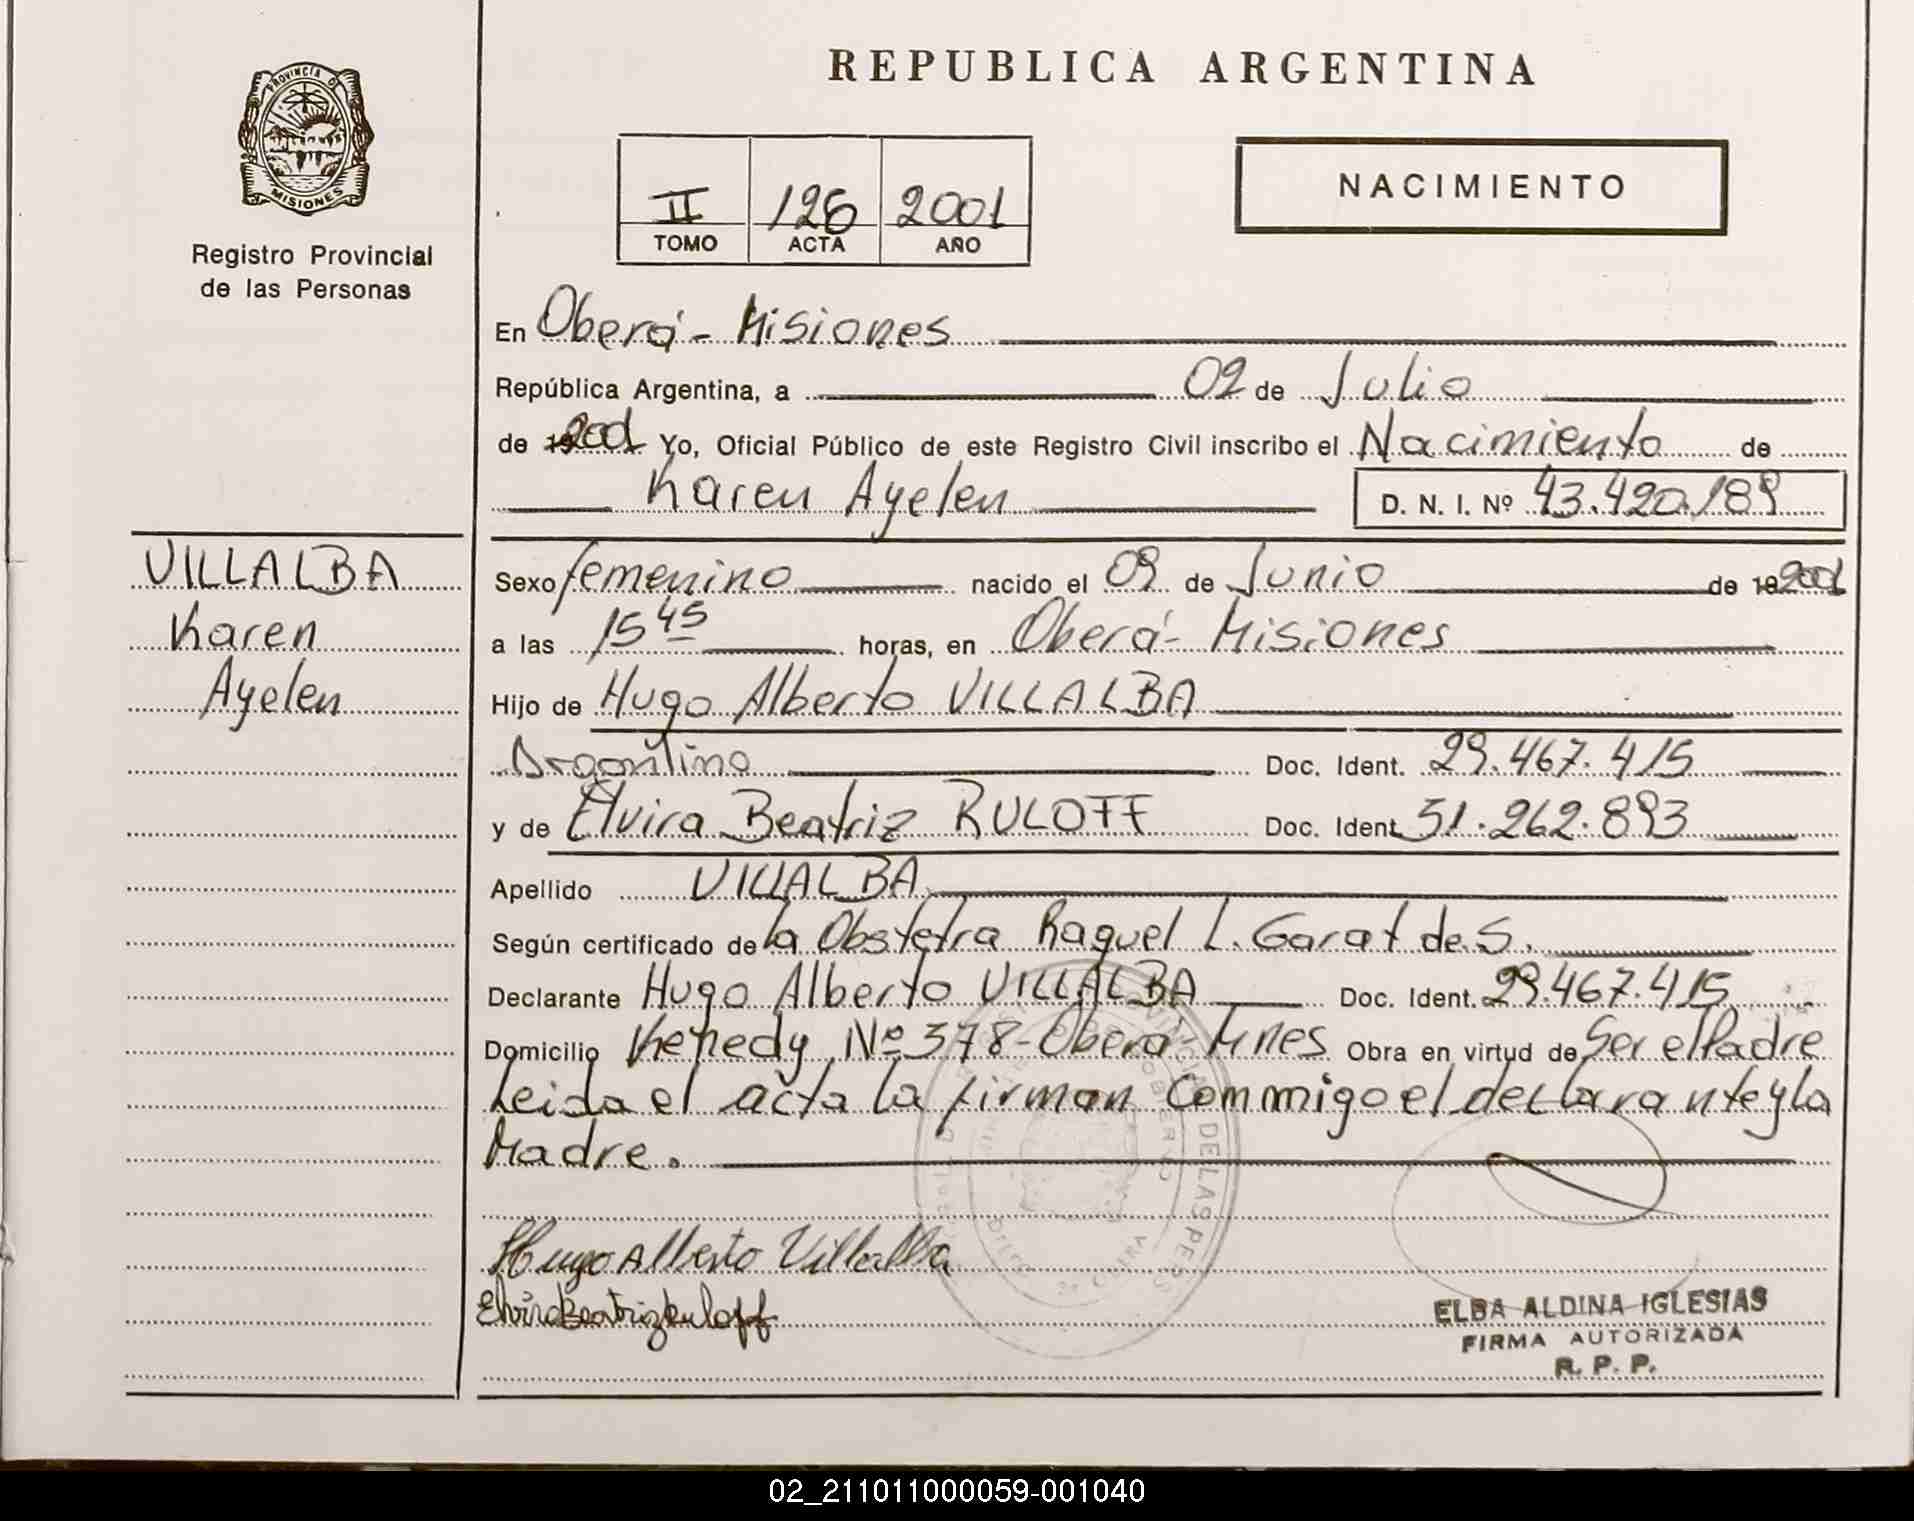 PROVINCIA DE
MISIONES
Registro Provincial
de las Personas
VILLALBA
Karen
Ayelen
REPUBLICA ARGENTINA
II 126 2001
TOMO ACTA AÑO
NACIMIENTO
En Oberá - Misiones
República Argentina, a 02 de Julio
de 19 2001 Yo, Oficial Público de este Registro Civil inscribo el Nacimiento de
Karen Ayelen D. N. I. Nº 43.420.189
Sexo femenino nacido el 09 de Junio de 19 2001
a las 15 45 horas, en Oberá - Misiones
Hijo de Hugo Alberto VILLALBA
Argentino Doc. Ident. 29.467.415
y de Elvira Beatriz RULOFF Doc. Ident. 31.262.893
Apellido VILLALBA
Según certificado de la Obstetra Raquel L. Garat de S.
Declarante Hugo Alberto VILLALBA Doc. Ident. 29.467.415
Domicilio Kenedy Nº 378 - Oberá - Mnes Obra en virtud de Ser el Padre
Leida el acta la firman Commigo el declarante y la
Madre.
Hugo Alberto Villalba
Elvira Beatriz Ruloff
ELBA ALDINA IGLESIAS
FIRMA AUTORIZADA
R. P. P.
02_211011000059-001040